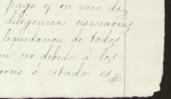 pago y en caso de
diligencias necesarias
liquidacion de todos
ser debidos á los
ó cobado es